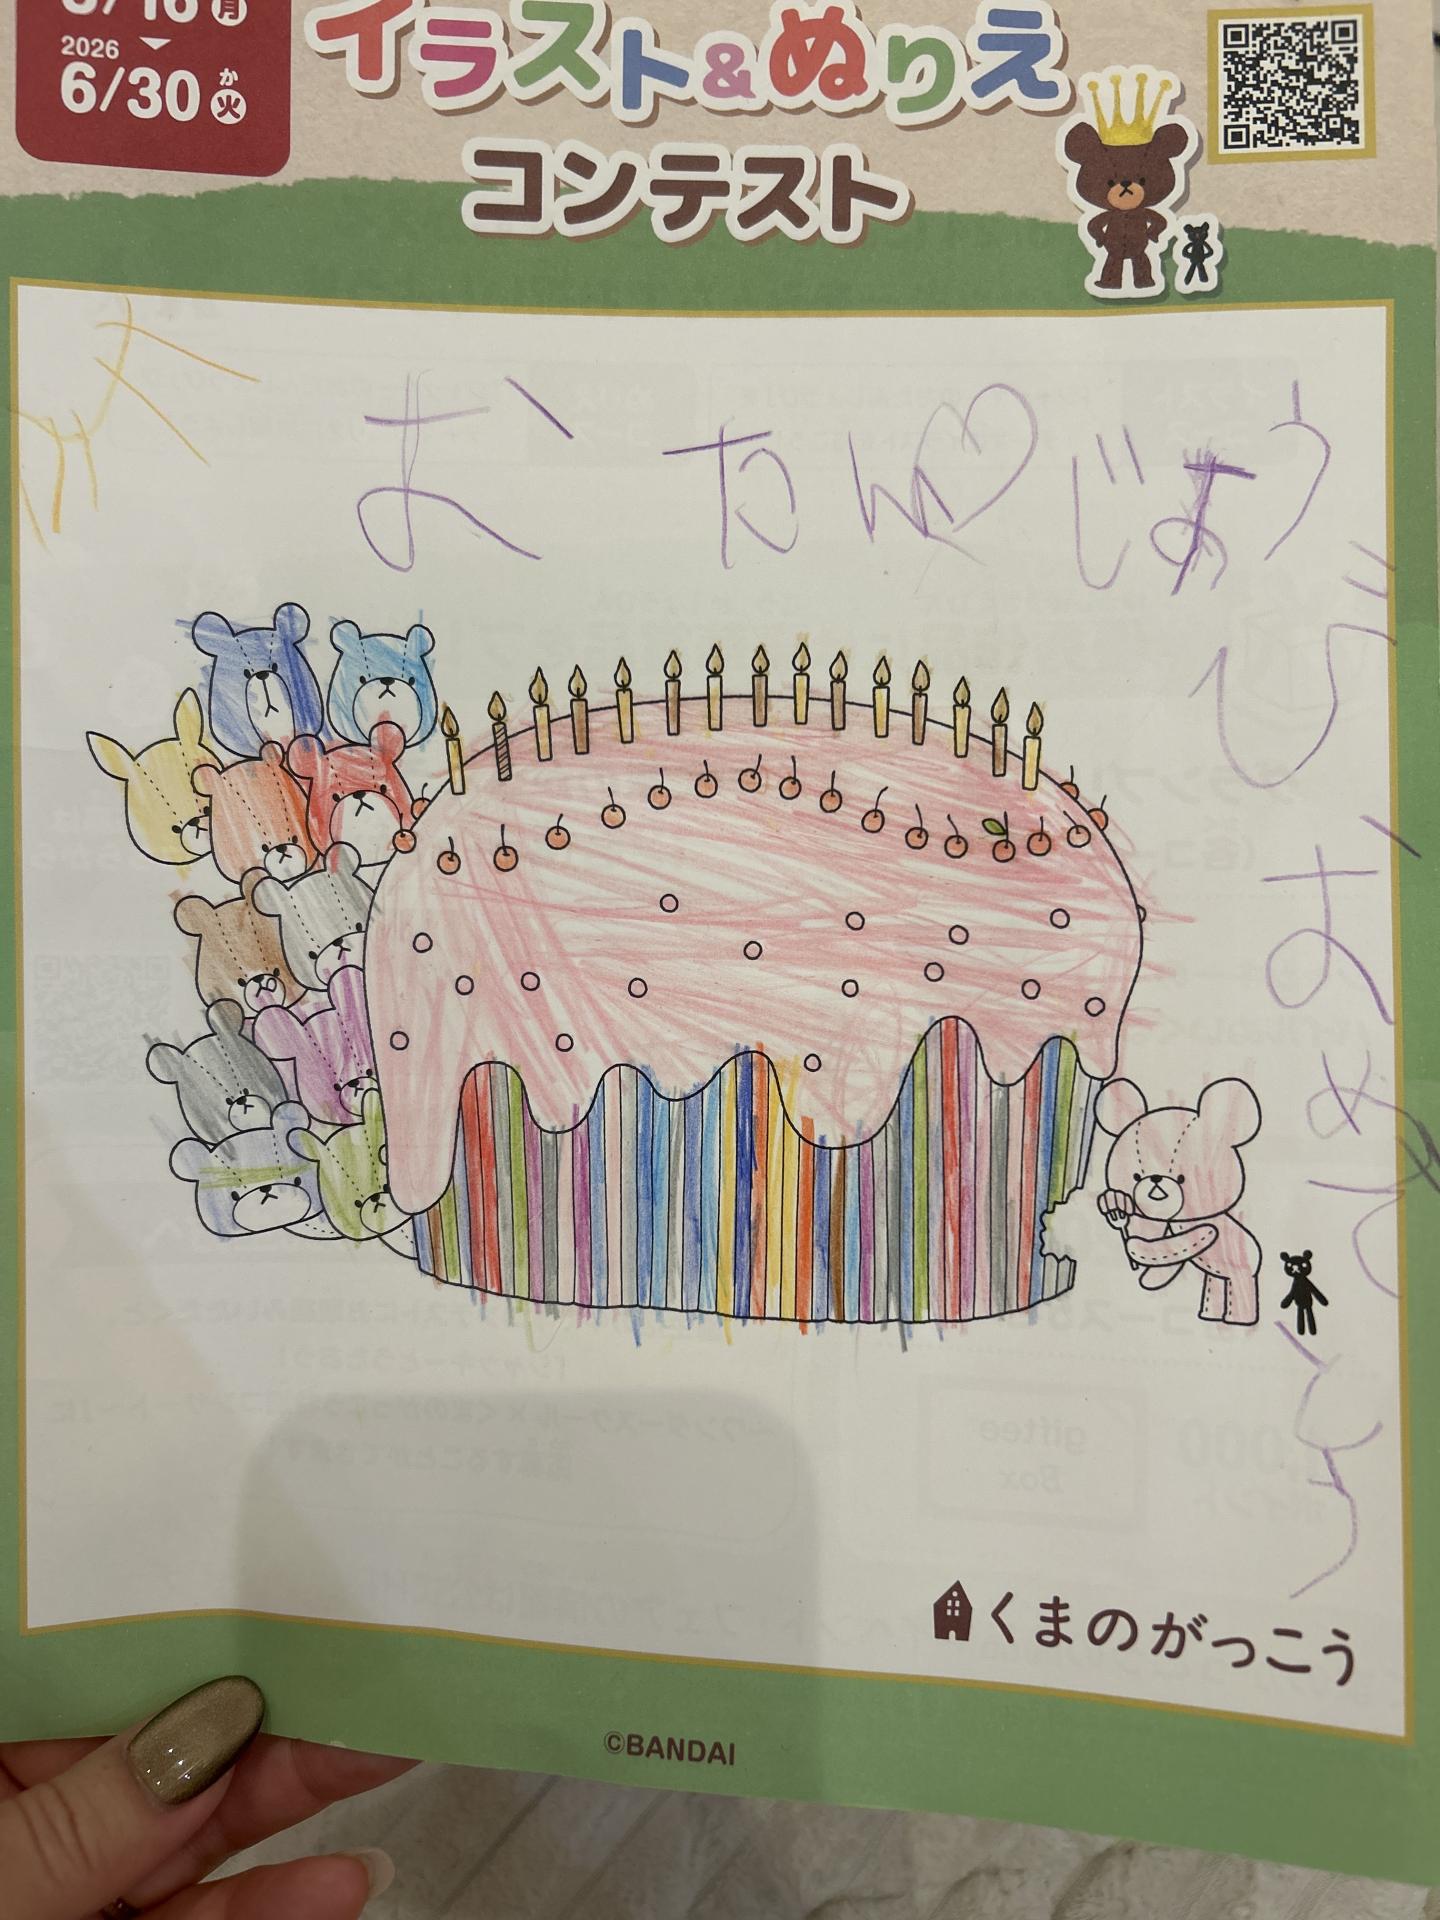 3/16月
2026
6/30火
か
イラスト&ぬりえ
コンテスト
おたん♡じょう
び
おめでとう
くまのがっこう
©BANDAI